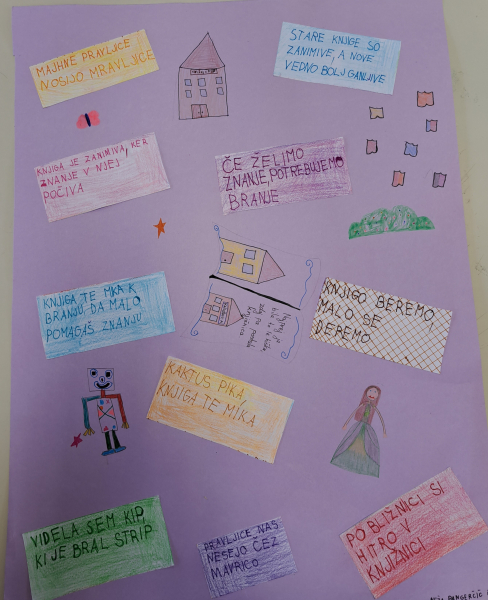 MAJHNE PRAVLJICE
NOSIJO MRAVLJICE
STARE KNJIGE SO
ZANIMIVE, A NOVE
VEDNO BOLJ GANLJIVE
KNJIGA JE ZANIMIVA, KER
ZNANJE V NJEJ
POČIVA
ČE ŽELIMO
ZNANJE, POTREBUJEMO
BRANJE
KNJIGA TE MIKA K
BRANJU, DA MALO
POMAGAŠ ZNANJU
KNJIGO BEREMO,
MALO SE
DEREMO
KAKTUS PIKA,
KNJIGA TE MIKA
VIDELA SEM KIP,
KI JE BRAL STRIP
PRAVLJICE NAS
NESEJO ČEZ
MAVRICO
POBLIŽNICI SI
HITRO V
KNJIŽNICI